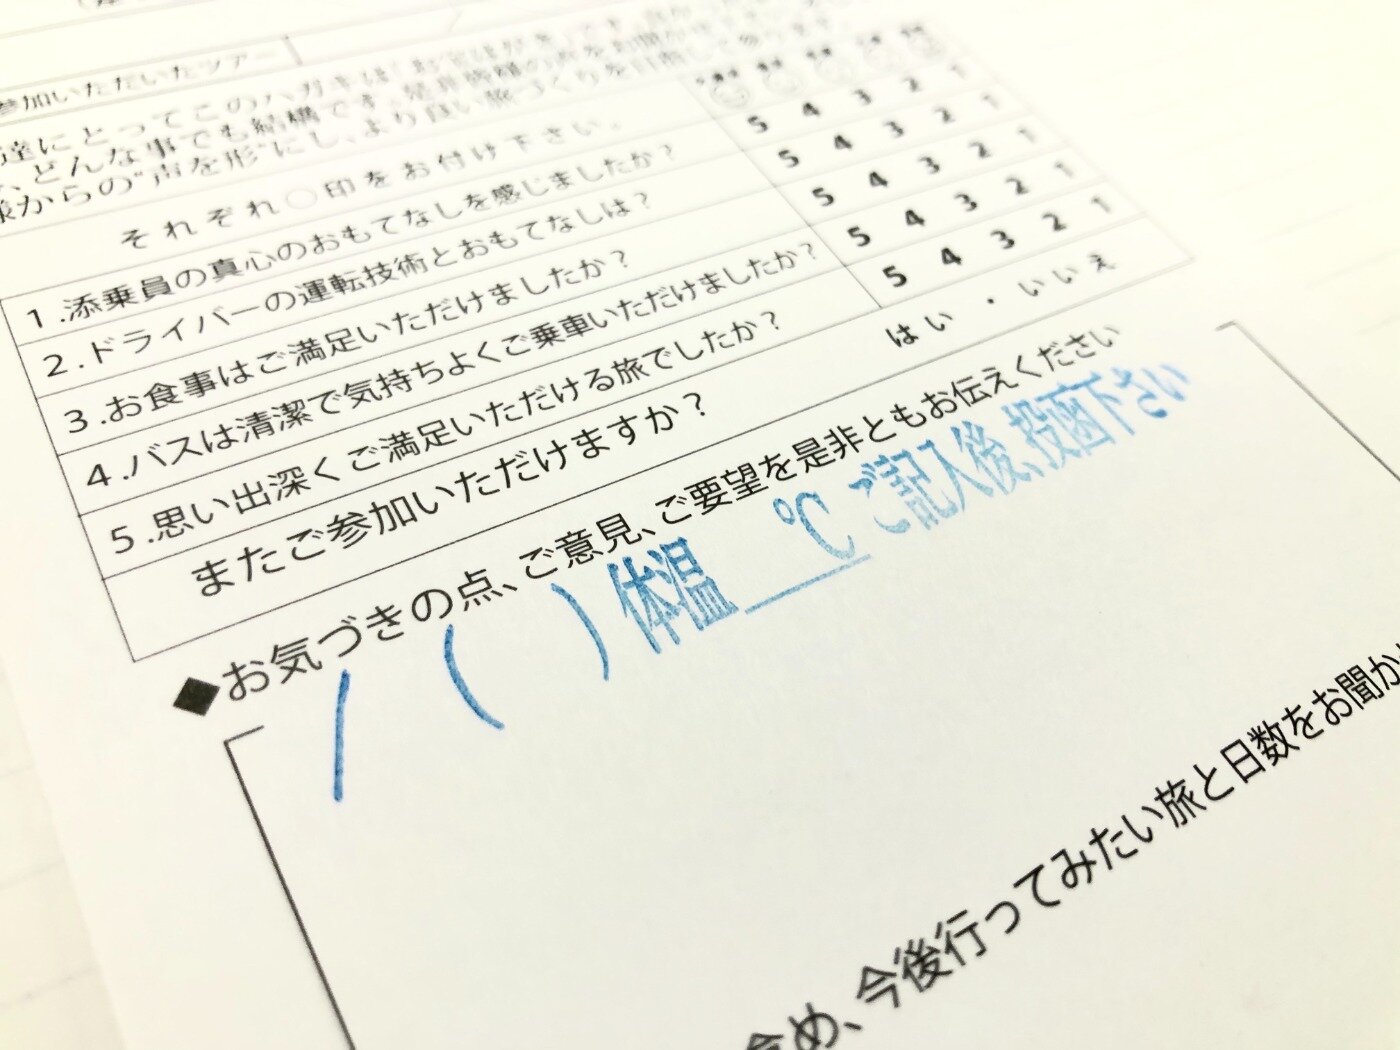 参加いただいたツアー
達にとってこのハガキは
どんな事でも結構です。是非皆様の声をお聞かせ
様からの"声を形"にし、より良い旅づくりを目指して参ります
それぞれ○印をお付け下さい。
1.添乗員の真心のおもてなしを感じましたか? 5 4 3 2 1
2.ドライバーの運転技術とおもてなしは? 5 4 3 2 1
3.お食事はご満足いただけましたか? 5 4 3 2 1
4.バスは清潔で気持ちよくご乗車いただけましたか? 5 4 3 2 1
5.思い出深くご満足いただける旅でしたか? 5 4 3 2 1
またご参加いただけますか? はい・いいえ
◆お気づきの点、ご意見、ご要望を是非ともお伝えください
/ ( ) 体温___℃ ご記入後、投函下さい
含め、今後行ってみたい旅と日数をお聞か